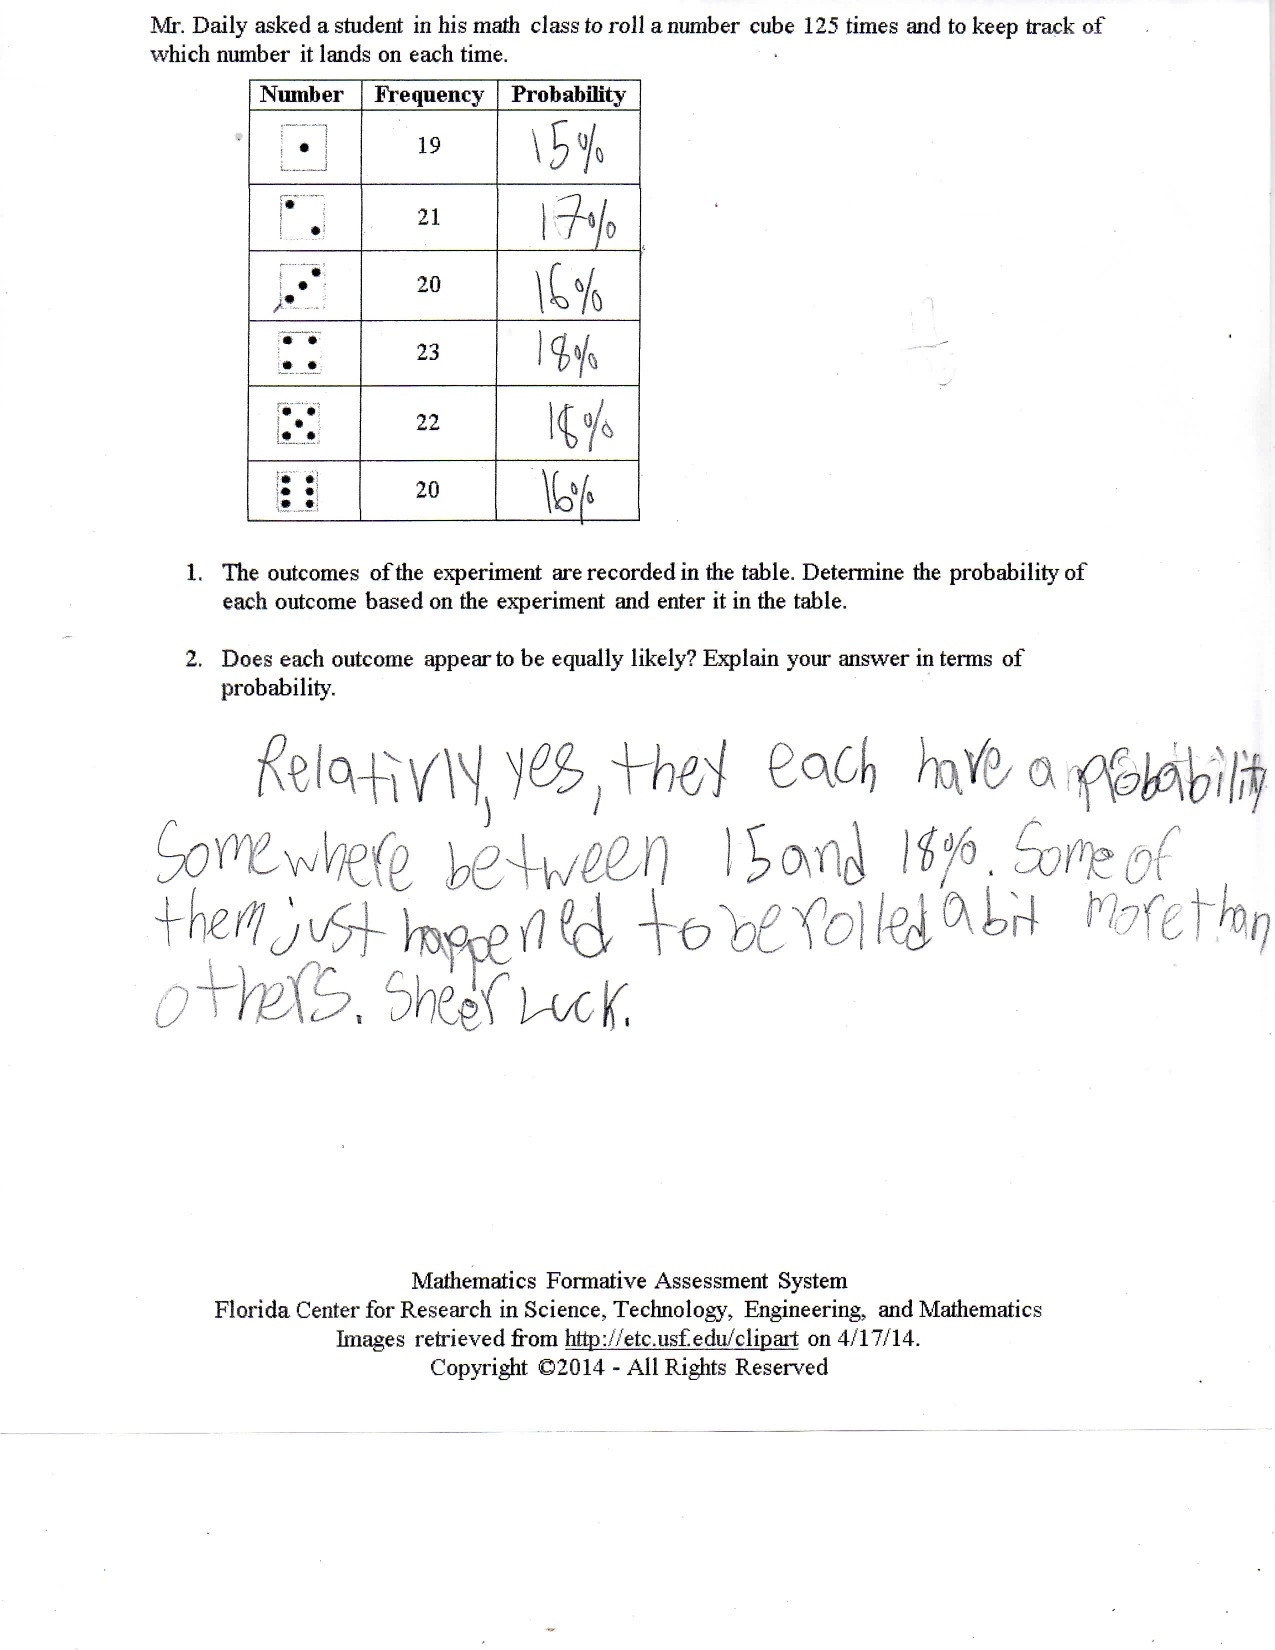 Mr. Daily asked a student in his math class to roll a number cube 125 times and to keep track of
which number it lands on each time.
Number Frequency Probability
19 15%
21 17%
20 16%
23 18%
22 18%
20 16%
1. The outcomes of the experiment are recorded in the table. Determine the probability of
each outcome based on the experiment and enter it in the table.
2. Does each outcome appear to be equally likely? Explain your answer in terms of
probability.
Relativly, yes, they each have a probability
Somewhere between 15 and 18%. Some of
them just happened to be rolled a bit more than
others. Sheer Luck.
Mathematics Formative Assessment System
Florida Center for Research in Science, Technology, Engineering, and Mathematics
Images retrieved from http://etc.usf.edu/clipart on 4/17/14.
Copyright ©2014 - All Rights Reserved